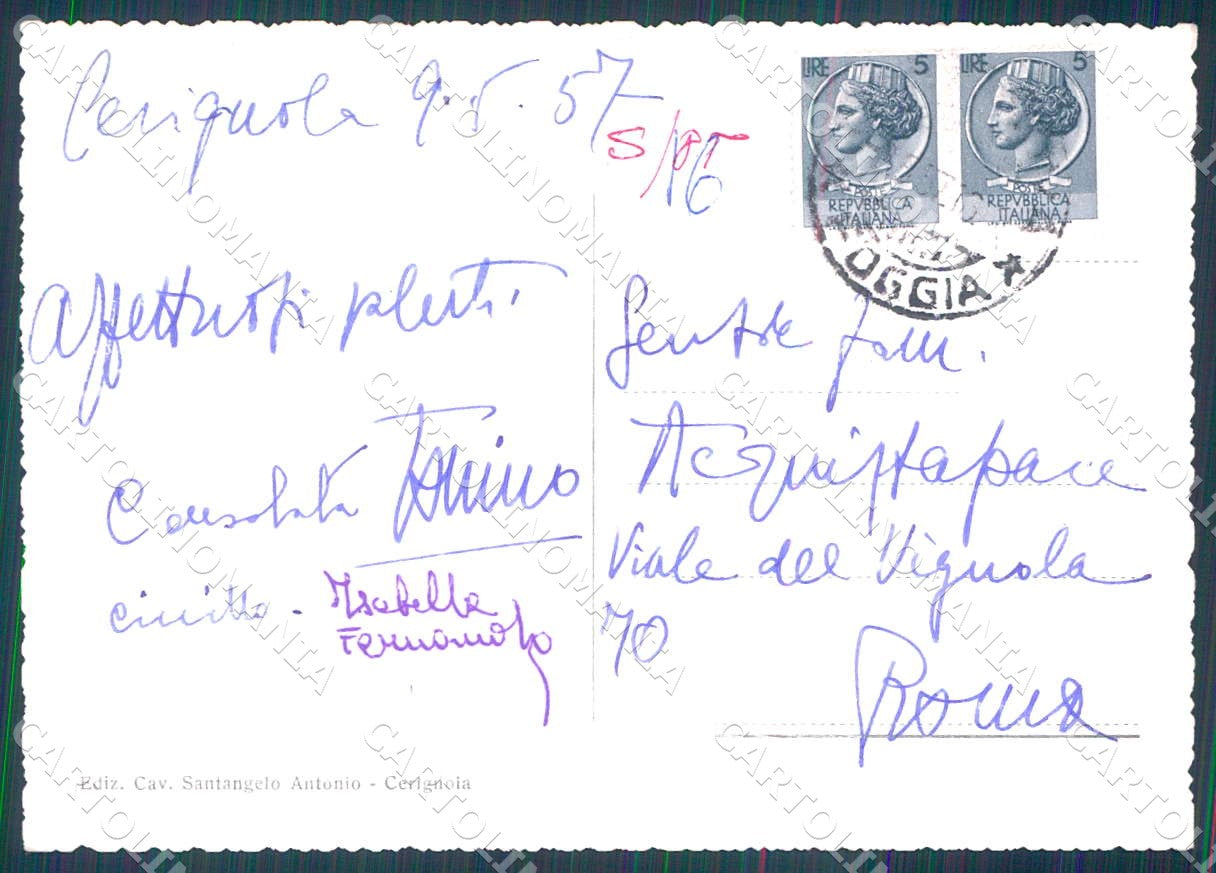 Cerignola 9.5.57
S/PT
16
LIRE 5
POSTE
REPVBBLICA
ITALIANA
LIRE 5
POSTE
REPVBBLICA
ITALIANA
OGGIA ★
Affettuosi
Consolata Tonino
Isabella
Fernando
Gentile fam.
Acquistapace
Viale del Vignola
70
Roma
Ediz. Cav. Santangelo Antonio - Cerignola
CARTOLINOMANIA